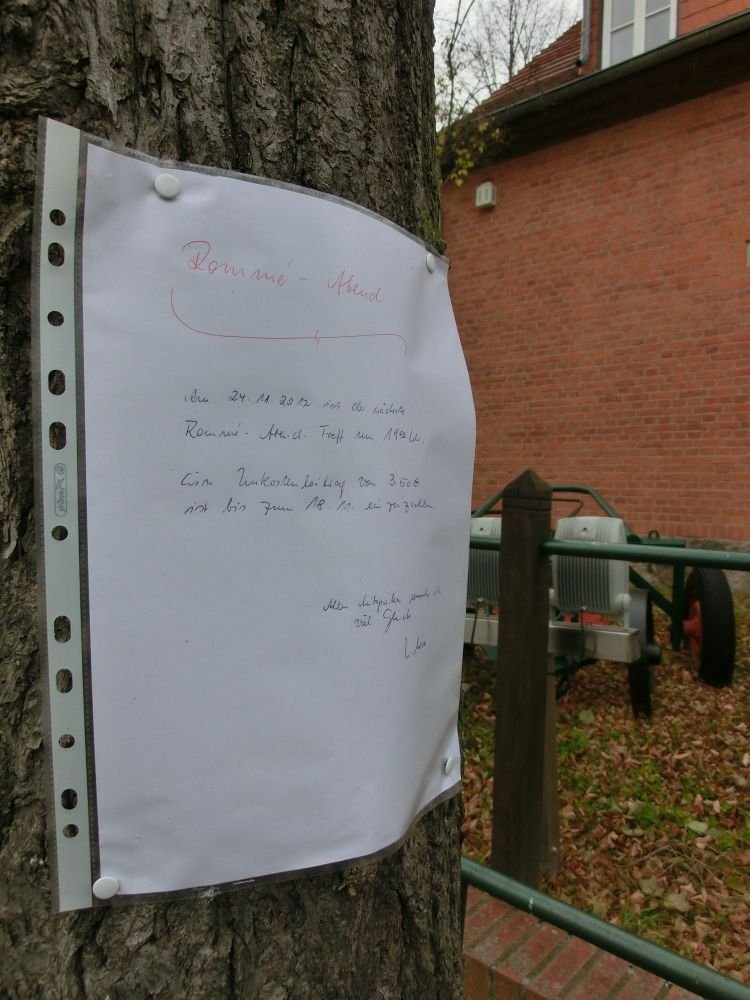 Rommé - Abend
Am 24. 11. 2012 ist der nächste
Rommé - Abend. Treff um 19⁰⁰ Uhr.
Ein Unkostenbeitrag von 3,50 €
ist bis zum 18. 11. einzuzahlen.
Allen Mitspielern wünsche ich
viel Glück